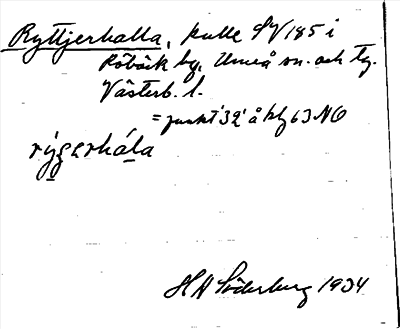 Ryttjerhalla, kulle SV 185 i
Röbäck by, Umeå sn. och tg.
Västerb. l.
= punkt 32 å kbl 63 NO
Söderberg 1934